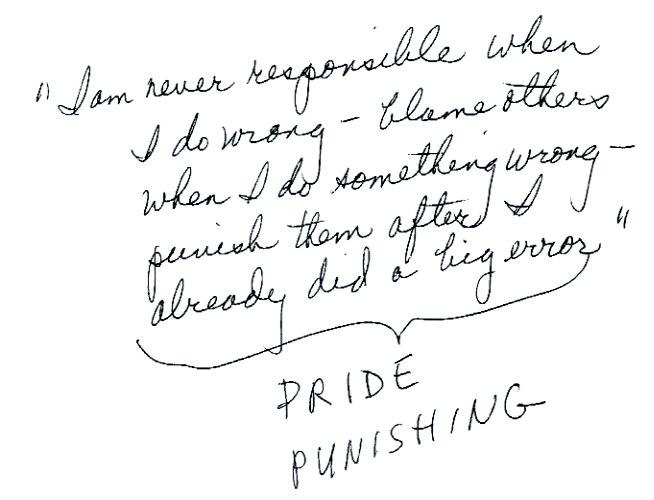 "I am never responsible when
I do wrong - blame others
when I do something wrong -
punish them after I
already did a big error"
PRIDE
PUNISHING